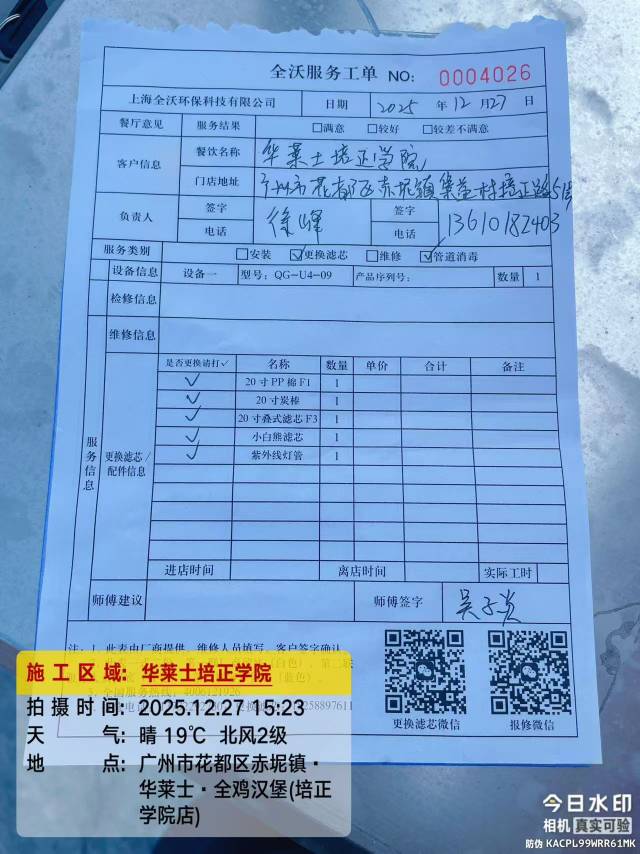 全沃服务工单 NO: 0004026
上海全沃环保科技有限公司 日期 2025 年 12 月 27 日
餐厅意见 服务结果 □满意 □较好 □较差不满意
客户信息 餐饮名称 华莱士培正学院
门店地址 广州市花都区赤坭镇集益村培正路5号
负责人 签字 徐峰 签字
电话 电话 13610182403
服务类别 □安装 ☑更换滤芯 □维修 ☑管道消毒
设备信息 设备一 型号: QG-U4-09 产品序列号: 数量 1
检修信息
维修信息
服务信息
更换滤芯/配件信息
是否更换请打✓ 名称 数量 单价 合计 备注
✓ 20寸PP棉F1 1
✓ 20寸炭棒 1
✓ 20寸叠式滤芯F3 1
✓ 小白熊滤芯 1
✓ 紫外线灯管 1
进店时间 离店时间 实际工时
师傅建议 师傅签字
注: 1. 此表由厂商提供, 维修人员填写, 客户签字确认
更换滤芯微信 报修微信
施工区域: 华莱士培正学院
拍摄时间: 2025.12.27 15:23
天气: 晴 19℃ 北风2级
地点: 广州市花都区赤坭镇·
华莱士·全鸡汉堡(培正
学院店)
今日水印
相机 真实可验
防伪 KACPL99WRR61MK